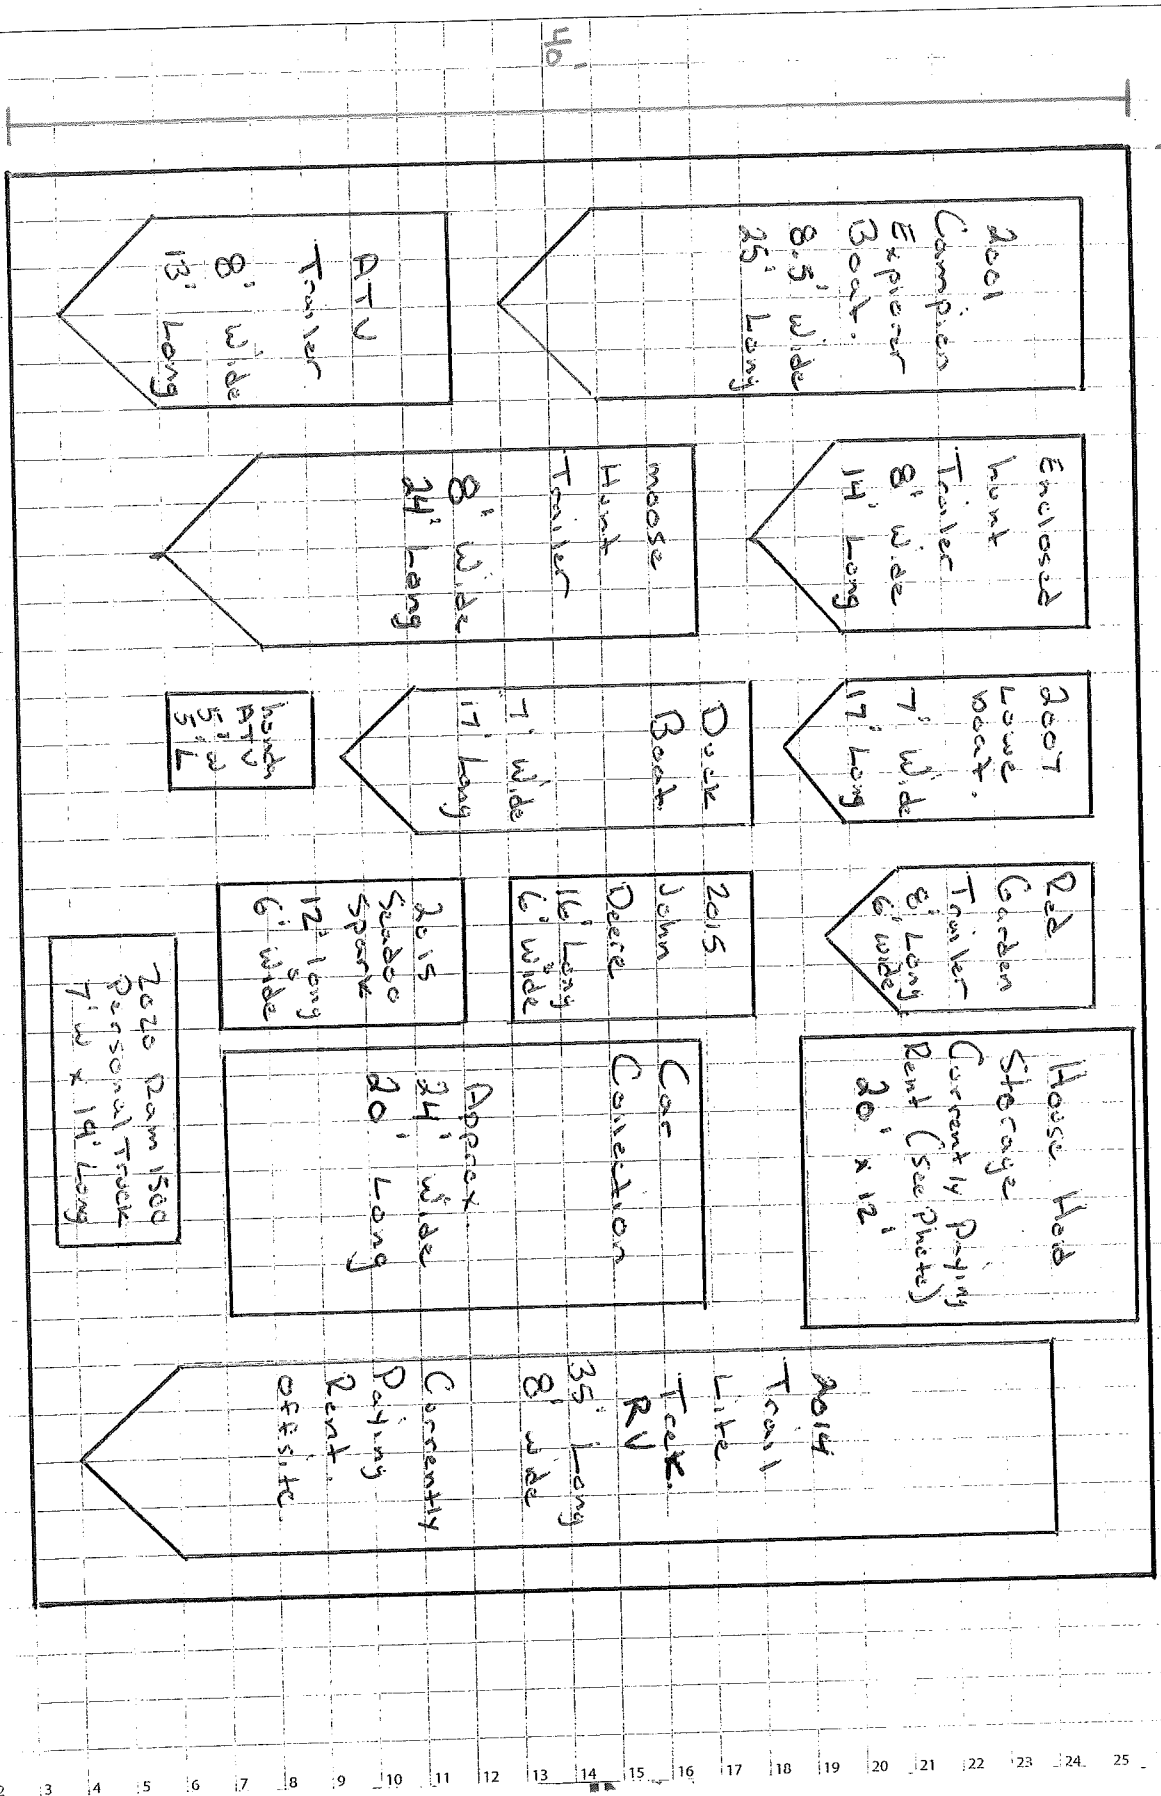 40'
2001
Campion
Explorer
Boat.
8.5' Wide
25' Long
ATV
Trailer
8' Wide
13' Long
Enclosed
hunt
Trailer
8' Wide
14' Long
moose
Hunt
Trailer
8' Wide
24' Long
2007
Lowe
boat.
7' Wide
17' Long
Duck
Boat
7' Wide
17' Long
honda
ATV
5' W
5' L
Red
Garden
Trailer
8' Long
6' wide
2015
John
Deere
16' Long
6' Wide
2015
Seadoo
Spark
12' long
6' wide
House Hold
Storage
Currently Paying
Rent (see photo)
20' x 12'
Car
Collection
Approx
24' Wide
20' Long
2020 Ram 1500
Personal Truck
7' W x 19' Long
2014
Trail
Lite
Trek.
RV
35' Long
8' wide
Currently
Paying
Rent.
offsite.
2 3 4 5 6 7 8 9 10 11 12 13 14 15 16 17 18 19 20 21 22 23 24 25